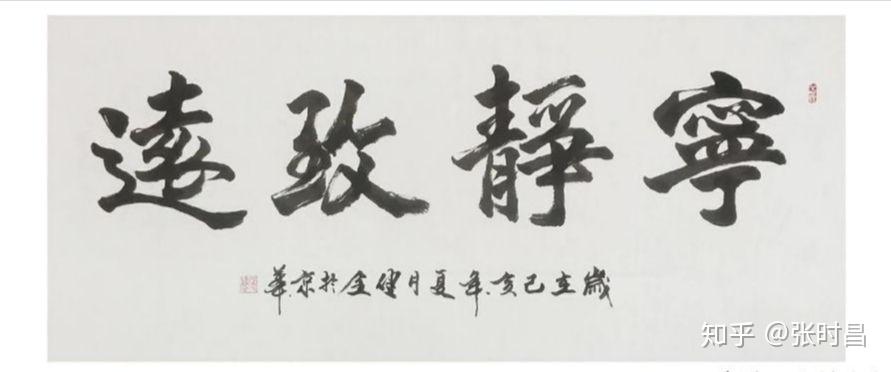 寧靜致遠
歲在己亥年夏月健全於京華
知乎 @张时昌